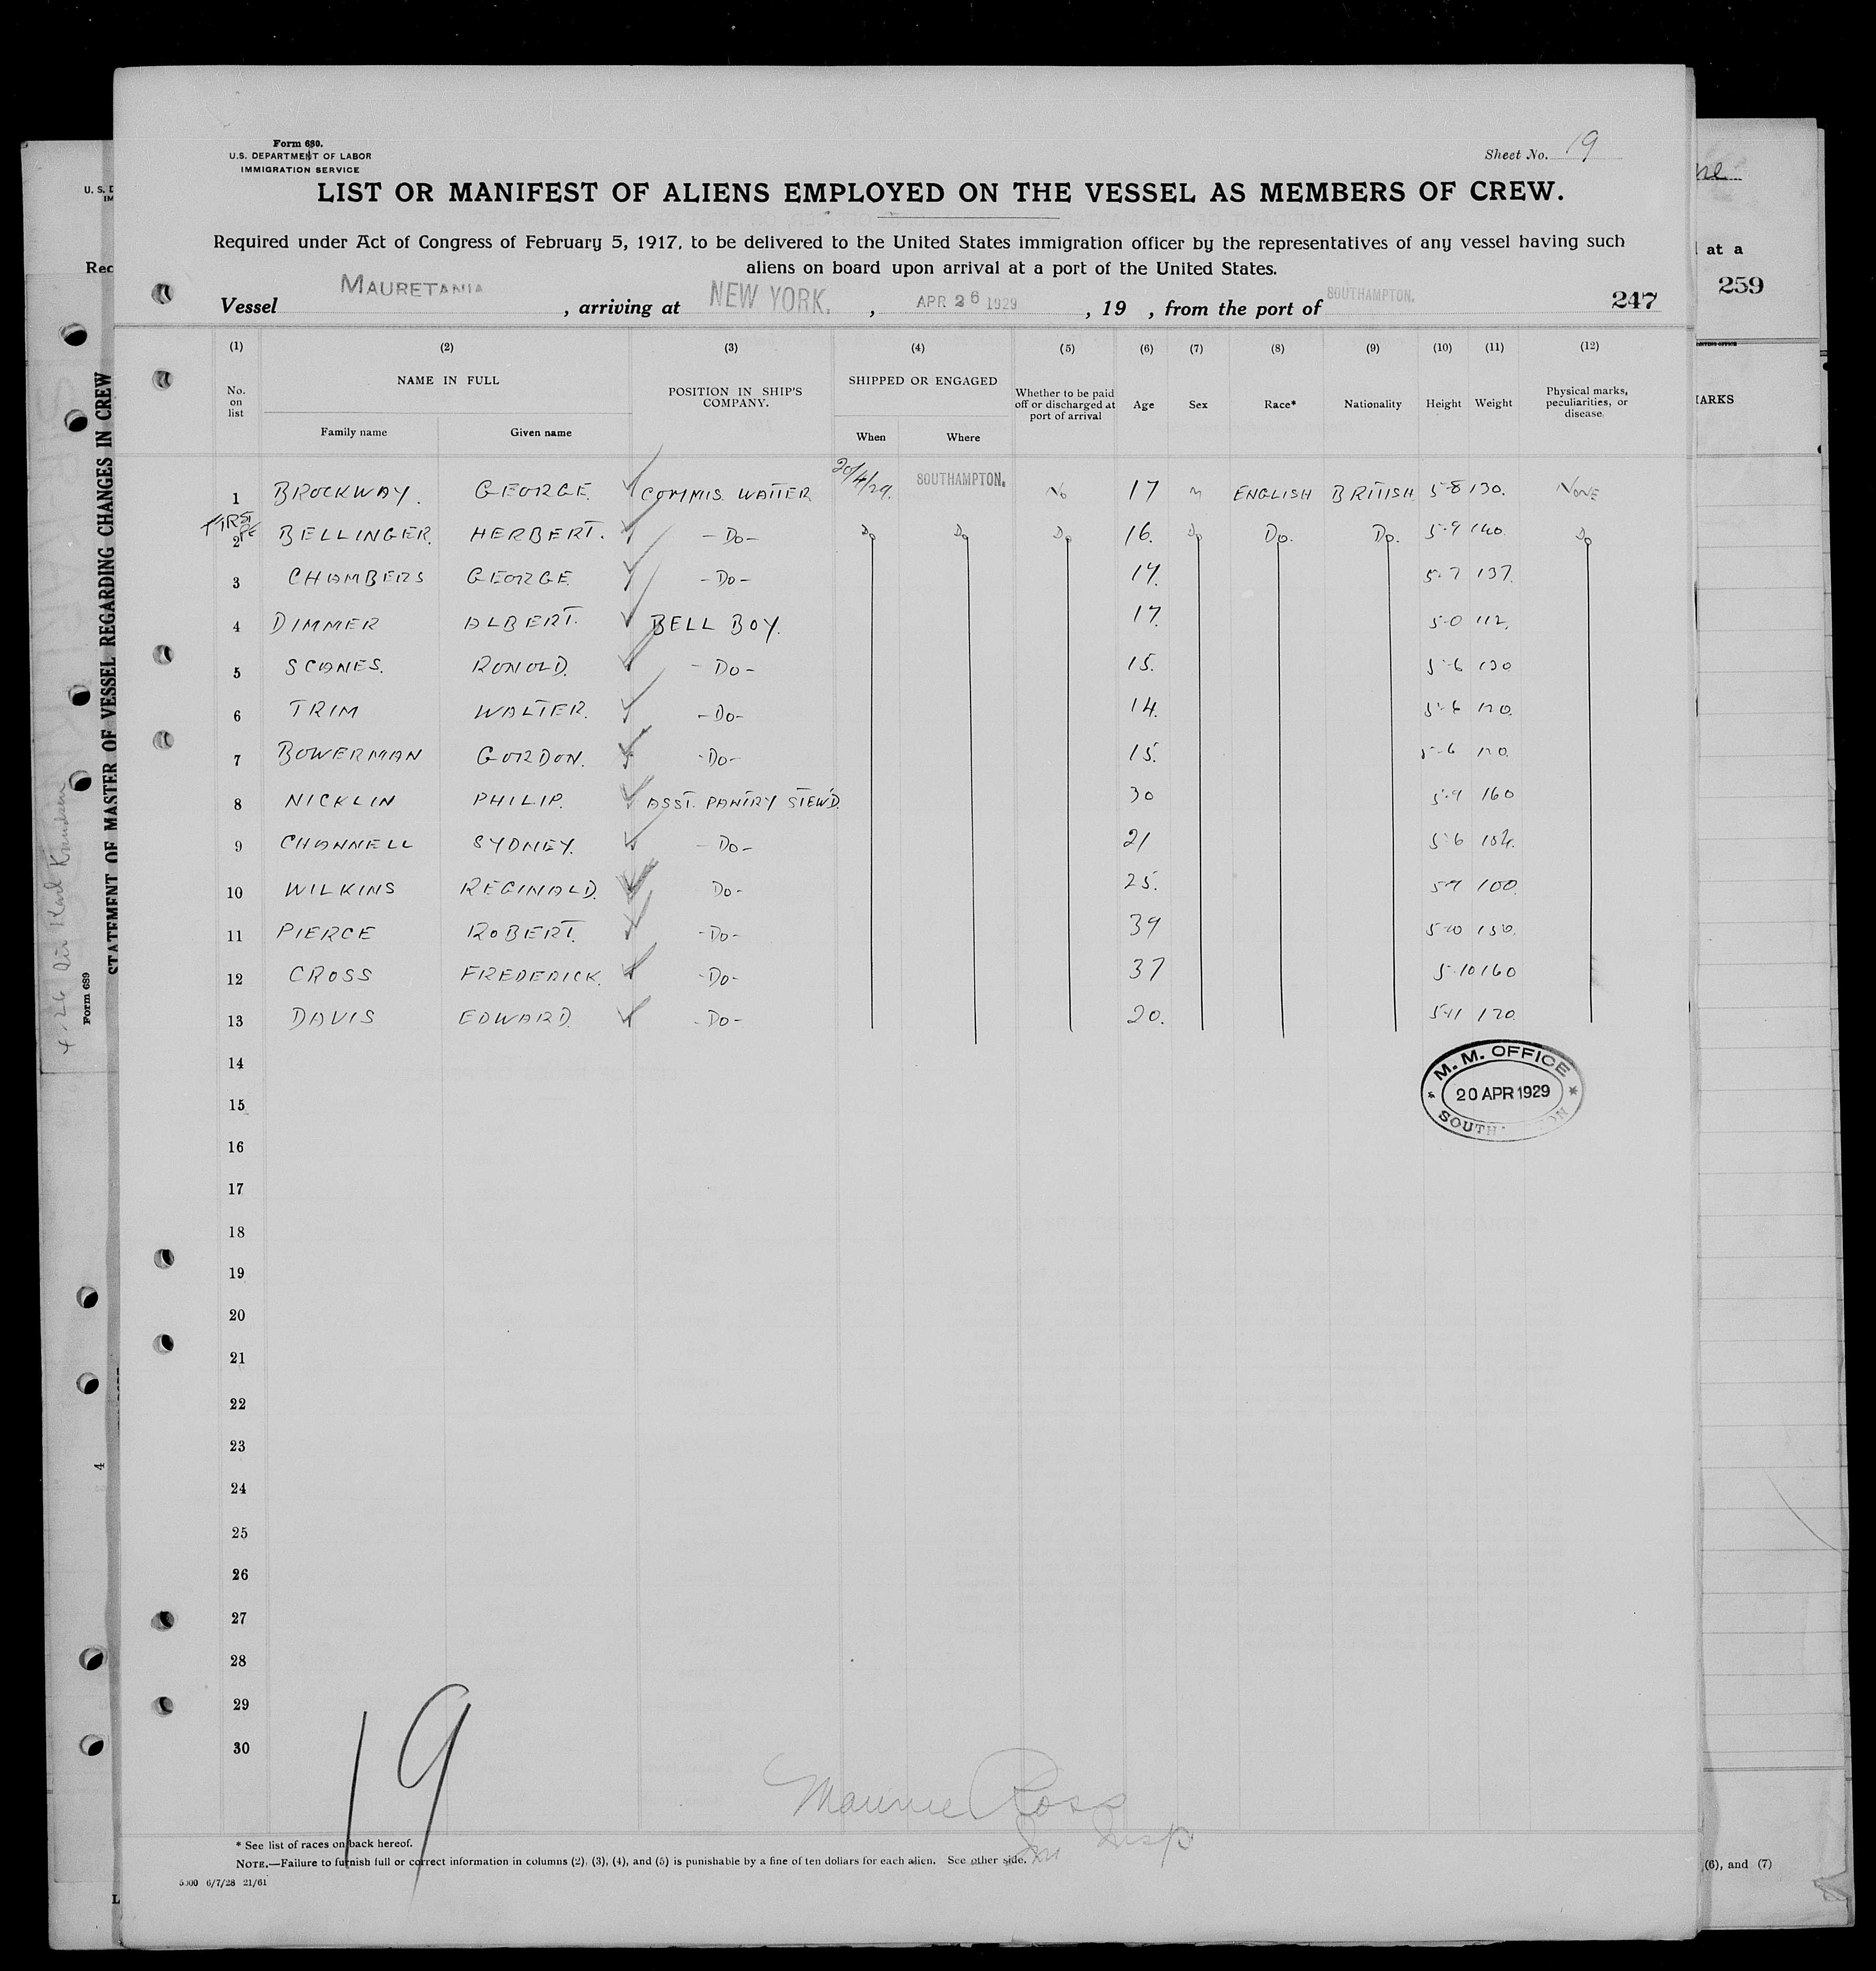 Form 680.
U.S. DEPARTMENT OF LABOR
IMMIGRATION SERVICE
Sheet No. 19
LIST OR MANIFEST OF ALIENS EMPLOYED ON THE VESSEL AS MEMBERS OF CREW.
Required under Act of Congress of February 5, 1917, to be delivered to the United States immigration officer by the representatives of any vessel having such
aliens on board upon arrival at a port of the United States.
Vessel MAURETANIA, arriving at NEW YORK, APR 26 1929, 19 , from the port of SOUTHAMPTON. 247
(1) (2) (3) (4) (5) (6) (7) (8) (9) (10) (11) (12)
No. on list NAME IN FULL Family name Given name POSITION IN SHIP'S COMPANY. SHIPPED OR ENGAGED When Where Whether to be paid off or discharged at port of arrival Age Sex Race* Nationality Height Weight Physical marks, peculiarities, or disease
1 BROCKWAY. GEORGE. COMMIS. WAITER 20/4/29. SOUTHAMPTON. No 17 M ENGLISH BRITISH 5-8 130. NONE
2 BELLINGER. HERBERT. -Do- Do Do Do 16. Do Do. Do. 5-9 140. Do
3 CHAMBERS GEORGE -Do- 5-7 137.
4 DIMMER ALBERT. BELL BOY. 17. 5-0 112.
5 SCANES. RONALD. -Do- 15. 5-6 130
6 TRIM WALTER. -Do- 14. 5-6 120.
7 BOWERMAN GORDON. -Do- 15. 5-6 120.
8 NICKLIN PHILIP. ASST. PANTRY STEW'D. 30 5-9 160
9 CHANNELL SYDNEY. -Do- 21 5-6
10 WILKINS REGINALD. Do- 25. 5-9 100.
11 PIERCE ROBERT. -Do- 39 5-10 150.
12 CROSS FREDERICK. -Do- 37 5-10 160
13 DAVIS EDWARD. -Do- 20. 5-11 170.
14
15
16
17
18
19
20
21
22
23
24
25
26
27
28
29
30
M. M. OFFICE
20 APR 1929
19
Maurice Ross
Im Insp
* See list of races on back hereof.
NOTE.—Failure to furnish full or correct information in columns (2), (3), (4), and (5) is punishable by a fine of ten dollars for each alien. See other side.
5000 6/7/28 21/61
STATEMENT OF MASTER OF VESSEL REGARDING CHANGES IN CREW
Form 689
4
at a
259
(6), and (7)